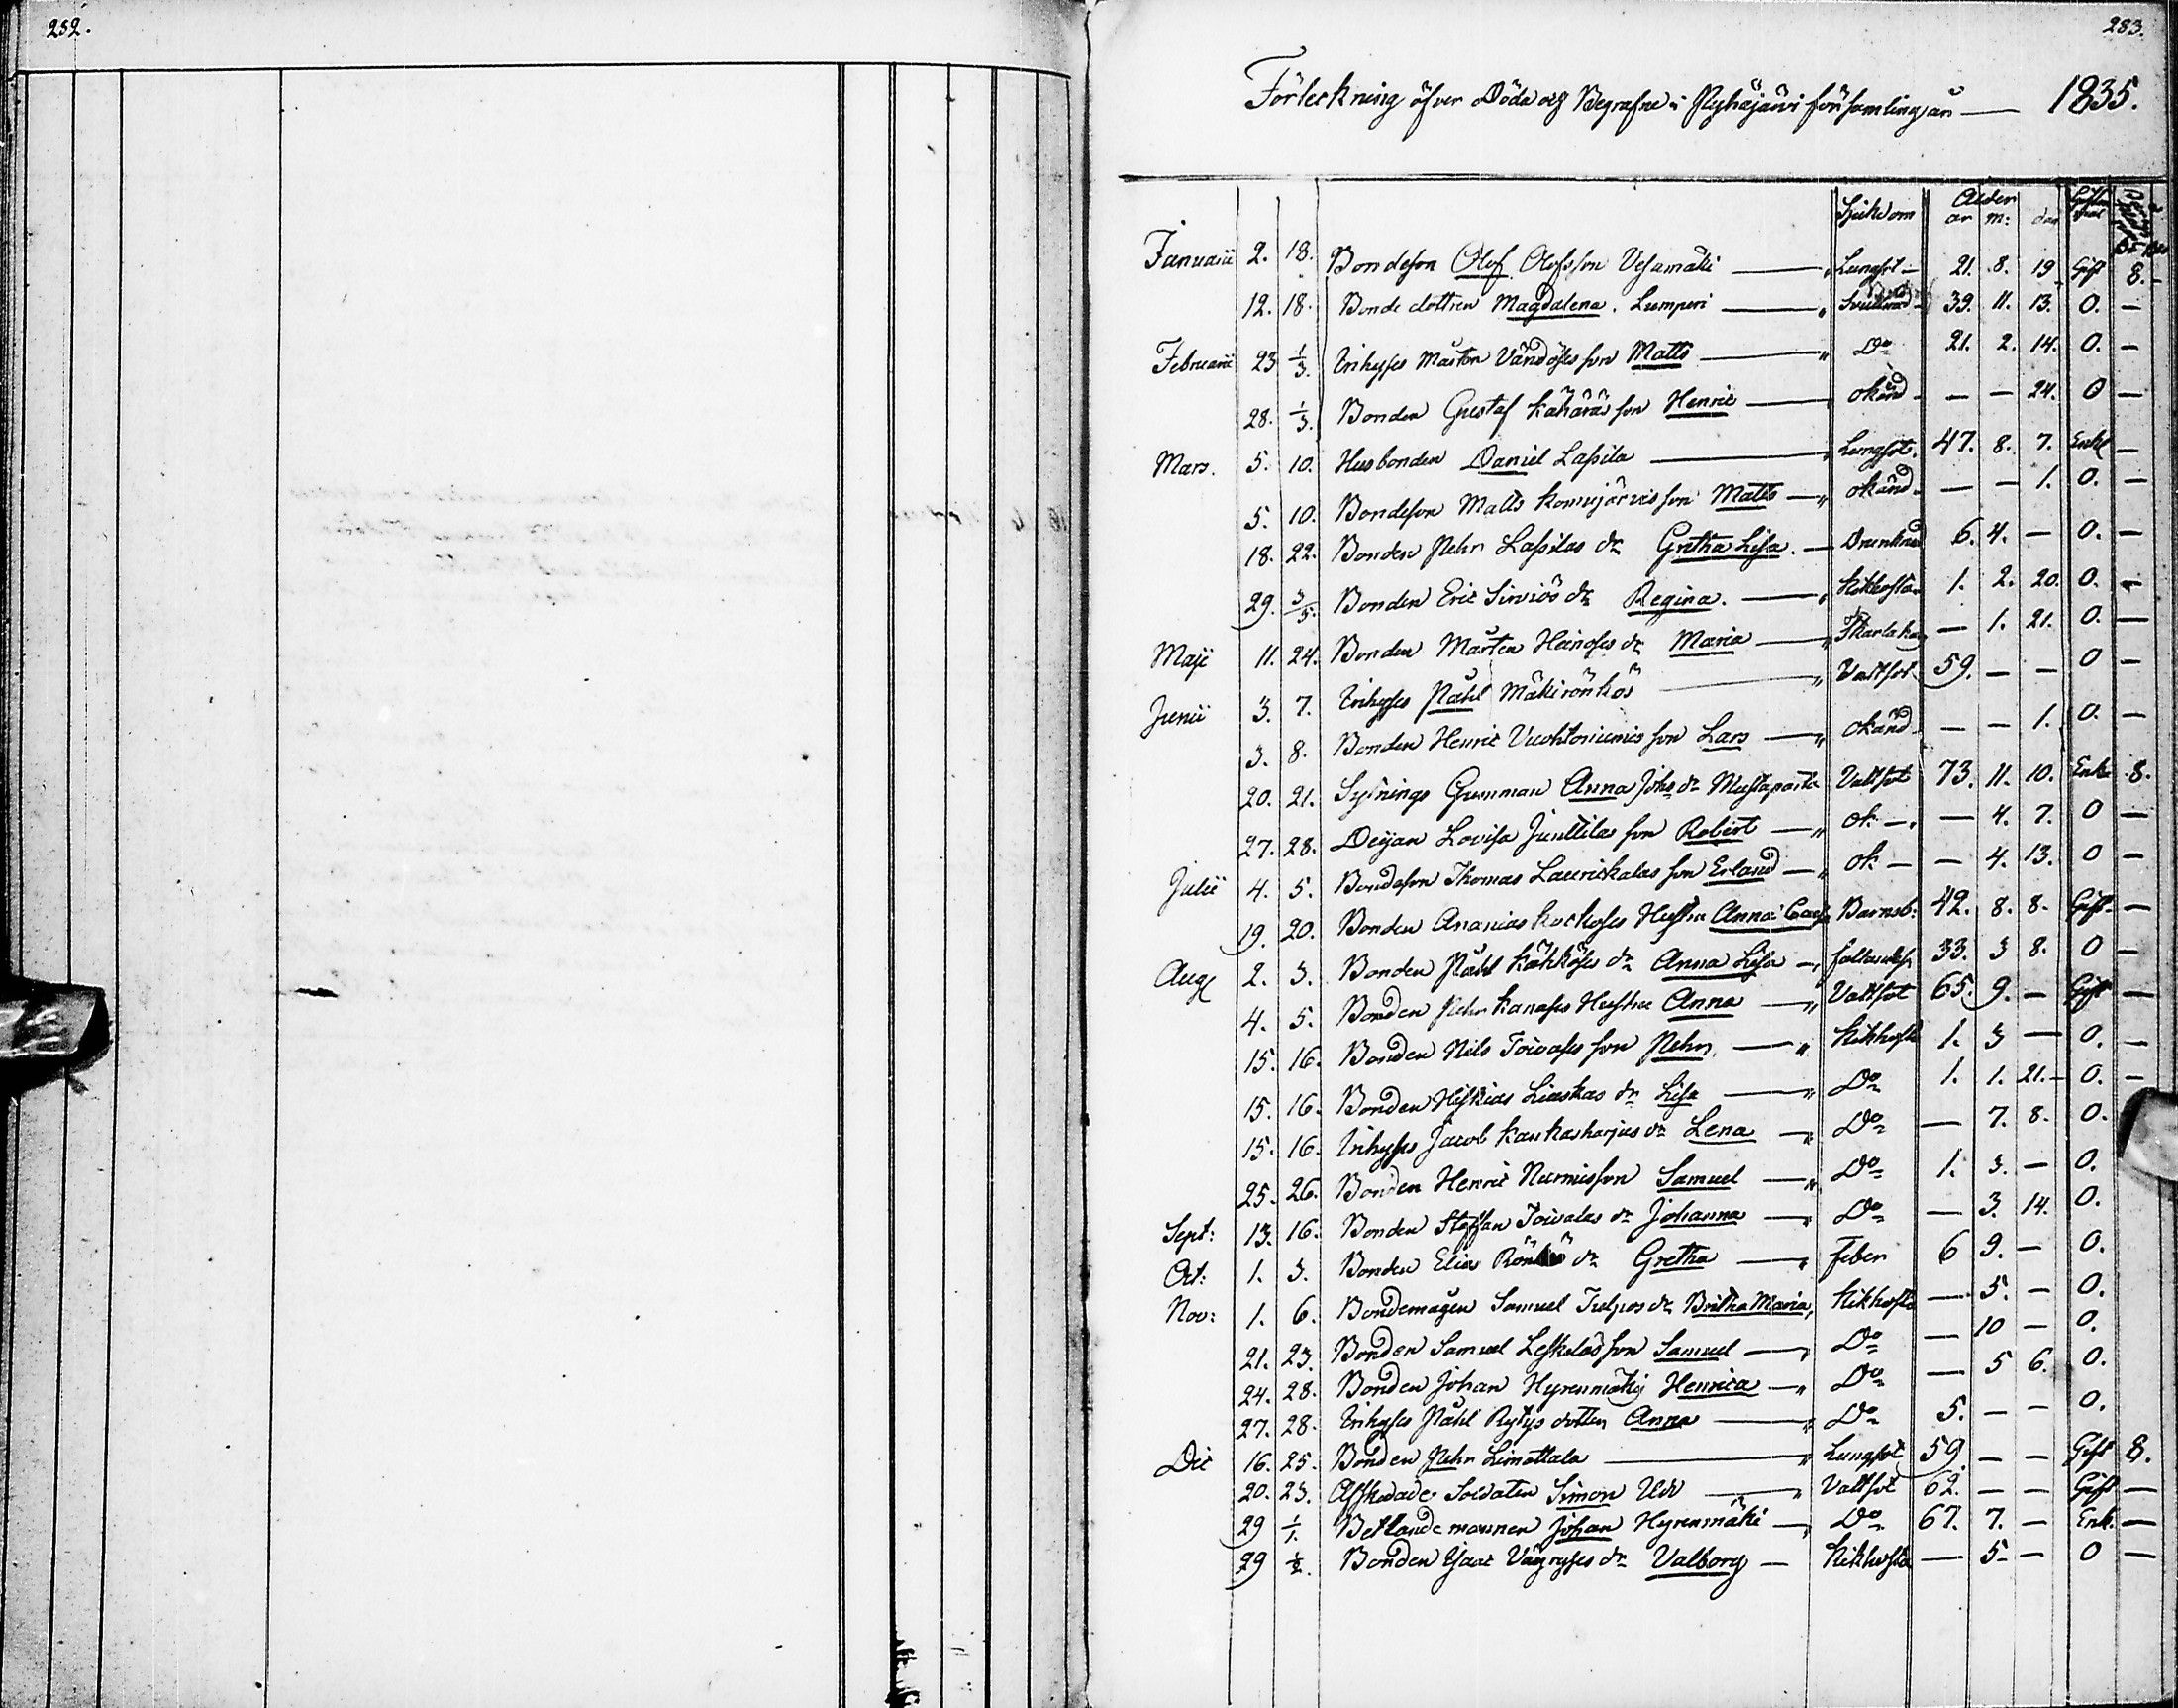 252.
283.
Förteckning öfver Döda och Begrafne i Pyhäjärvi församling år — 1835.
Sjukdom Ålder
år m: dar
Januarii 2. 18. Bondeson Olof Olofsson Vesamäki — Lungsot — 21. 8. 19 Gift 8. -
12. 18. Bonde dottren Magdalena Lumperi — 39. 11. 13. 0. —
Februarii 23 1/3. Inhyses Mårten Vändöses son Matts — Do 21. 2. 14. 0. —
28. 1/3. Bonden Gustaf Kähäräs son Henric — okänd — — 24. 0 —
Mars. 5. 10. Husbonden Daniel Lassila — Lungsot. 47. 8. 7. Enkl —
5. 10. Bondeson Matts Komujärvis son Matts — okänd — — 1. 0. —
18. 22. Bonden Pehr Lassilas dr Gretha Lisa. — Drunknad 6. 4. — 0. —
29. 3/5. Bonden Eric Sirviös dr Regina. — Kikhosta 1. 2. 20. 0. —
Maji 11. 24. Bonden Mårten Heinoses dr Maria — — 1. 21. 0. —
Junii 3. 7. Inhyses Påhl Mäkirönkös — Vattsot 59. — — 0 —
3. 8. Bonden Henric Vuohtoniemis son Lars — okänd — — 1. 0. —
20. 21. Sytnings Gumman Anna Johs dr Mustaparta Vattsot 73. 11. 10. Enk. 8.
27. 28. Deijan Lovisa Junttilas son Robert — ok — — 4. 7. 0 —
Julii 4. 5. Bondeson Thomas Laurickalas son Erland — ok — — 4. 13. 0 —
19. 20. Bonden Ananias Kockoses Hustru Anna Caisa Barnsb: 42. 8. 8. Gift —
Aug 2. 3. Bonden Påhl Kähköses dr Anna Lisa — 33. 3 8. 0 —
4. 5. Bonden Pehr Kanases Hustru Anna — Vattsot 65. 9. — Gift —
15. 16. Bonden Nils Toivases son Pehr — Kikhosta 1. 3 — 0. —
15. 16. Bonden Hiskias Liuskas dr Lisa — Do 1. 1. 21. — 0. —
15. 16. Inhyses Jacob Kankasharjus dr Lena — Do — 7. 8. 0.
25. 26. Bonden Henric Nurmis son Samuel — Do 1. 3. — 0.
Sept: 13. 16. Bonden Staffan Toivalas dr Johanna — Do — 3. 14. 0.
Oct: 1. 3. Bonden Elias dr Gretha — Feber 6 9. — 0.
Nov: 1. 6. Bondemågen Samuel Tulpos dr Britha Maria, Kikhosta — 5. — 0.
21. 23. Bonden Samuel Leskeläs son Samuel — Do — 10 — 0.
24. 28. Bonden Johan Hyrenmäkij Henrica — Do — 5 6. 0.
27. 28. Inhyses Påhl Rytys dotter Anna — Do 5. — — 0.
Dec 16. 25. Bonden Pehr Limattala — Lungsot 59. — — Gift 8.
20. 25. Afskedade Soldaten Simon Udd — Vattsot 62. — — Gift —
29 1/1. Betlande mannen Johan Hyrenmäki — Do 67. 7. — Enk. —
29 1/2. Bonden Isaac Väyryses dr Valborg — Kikhosta — 5 — 0 —